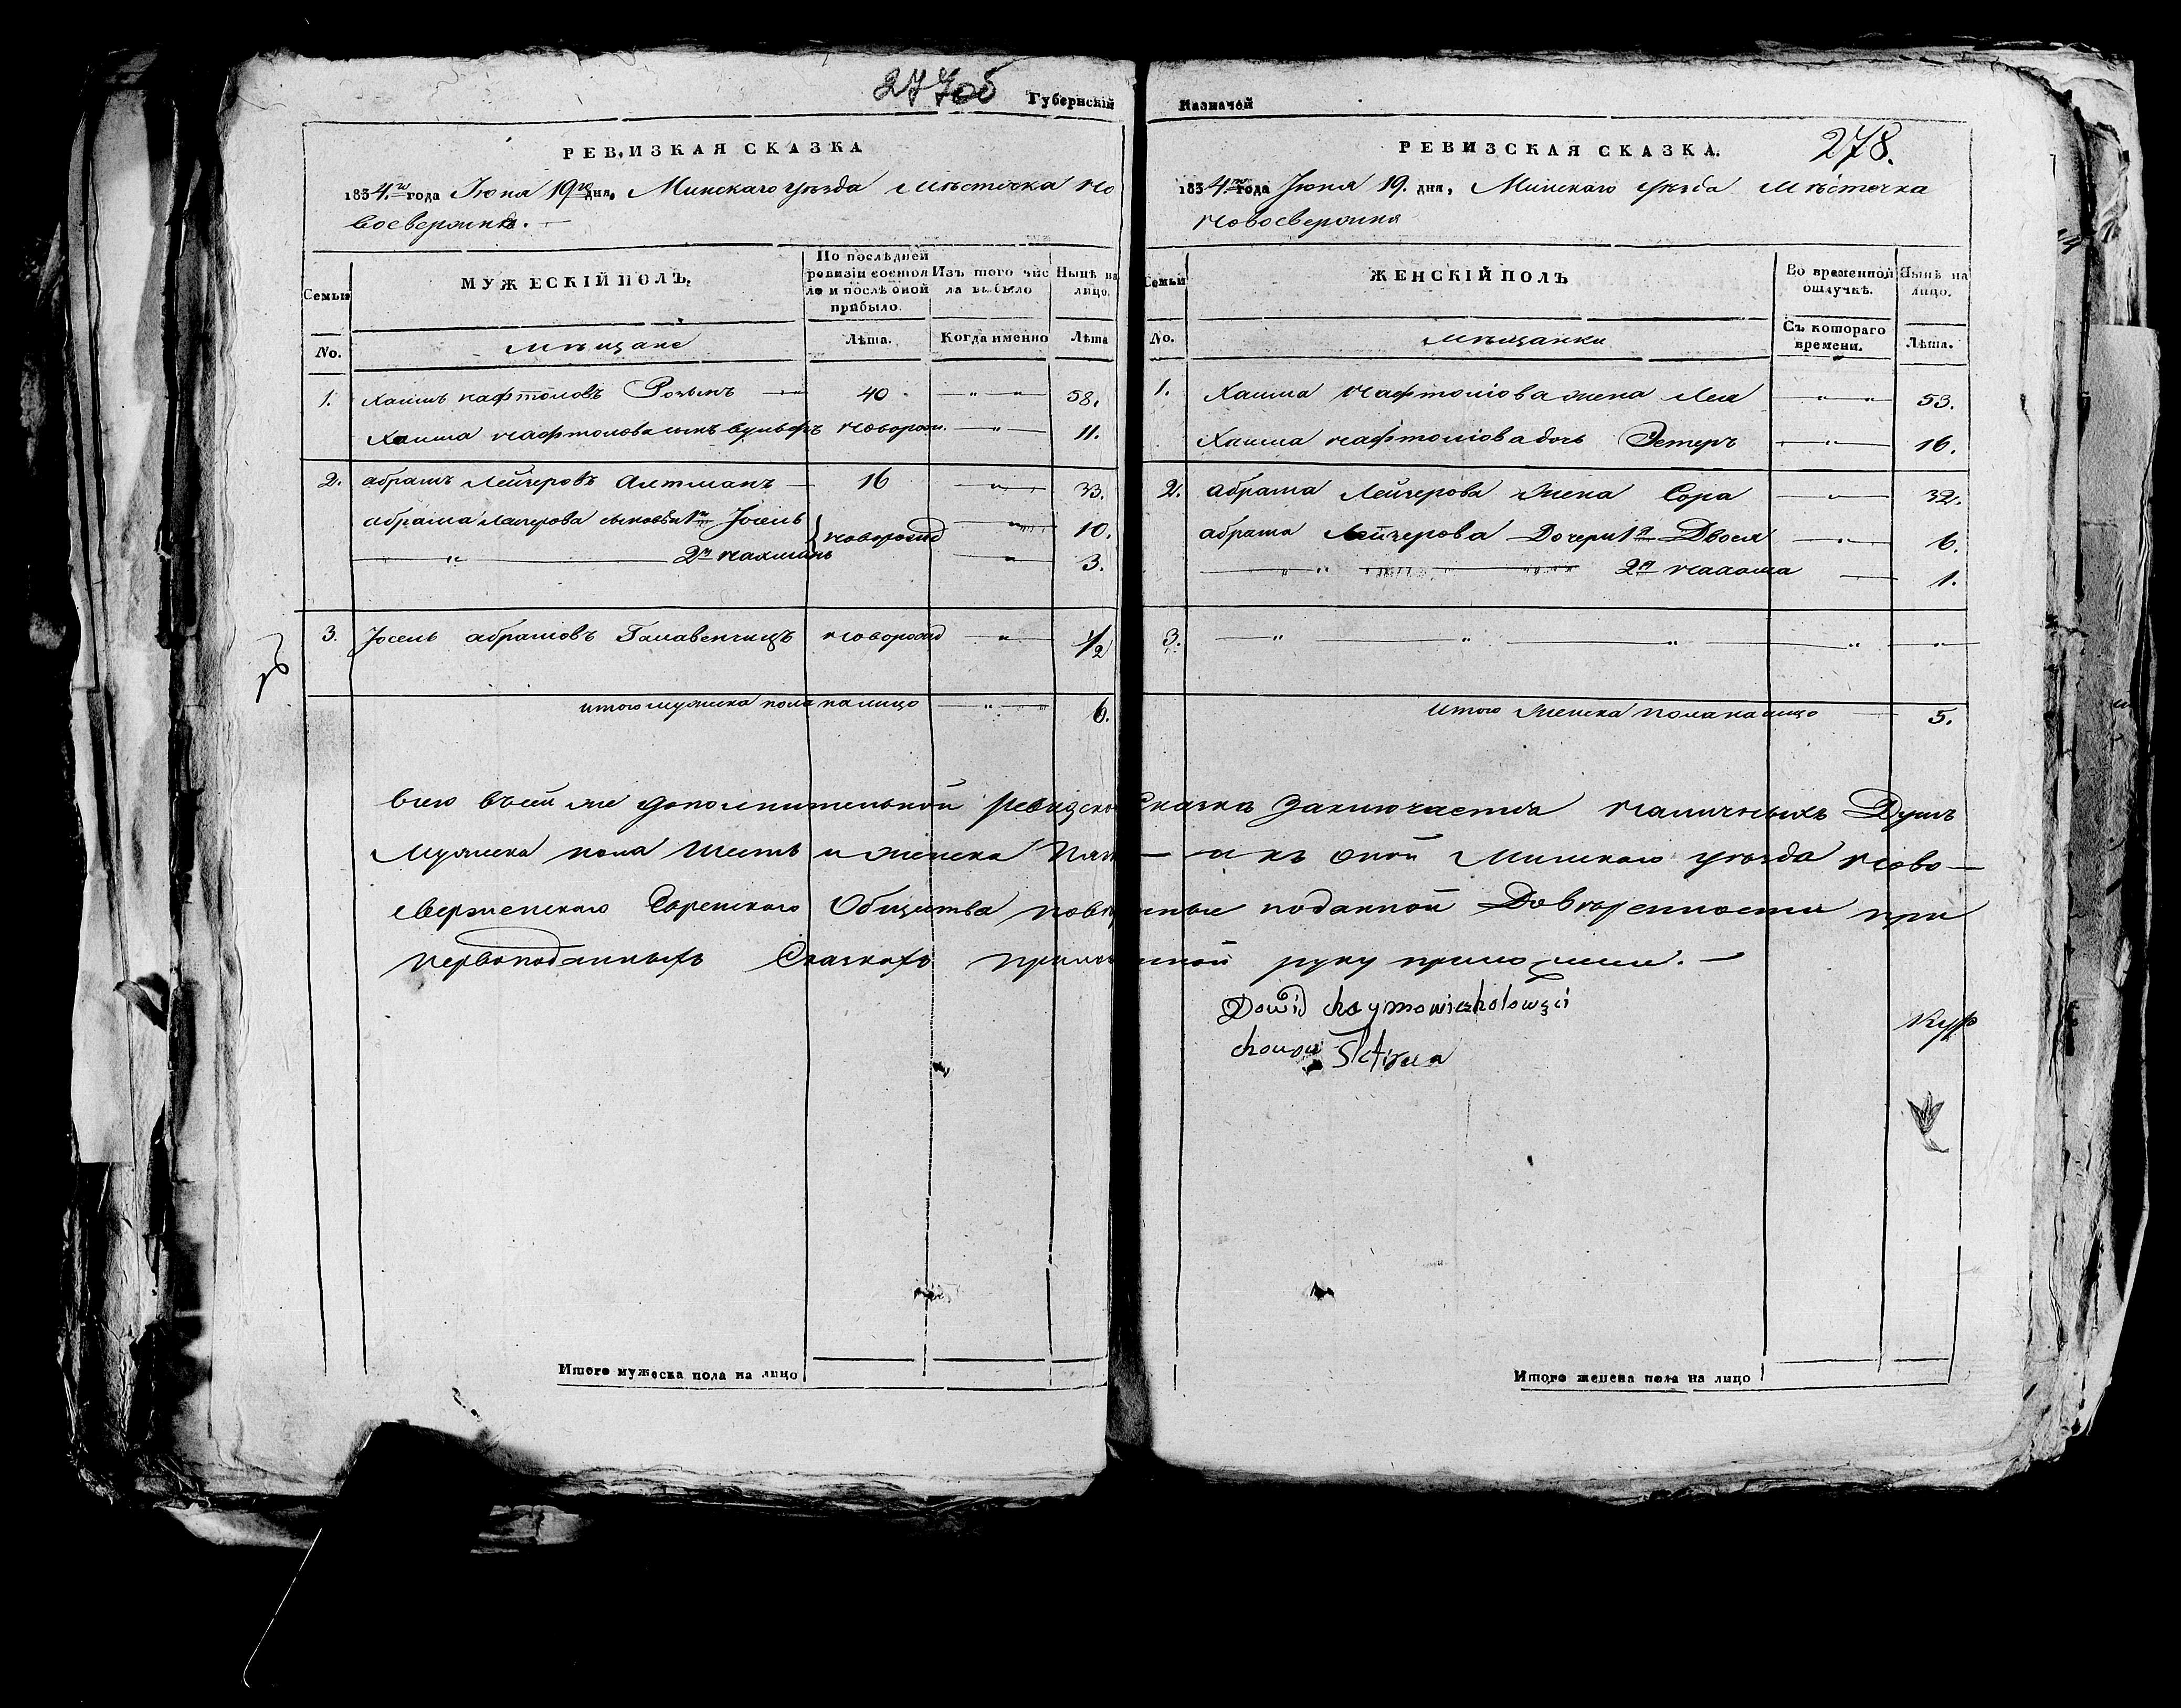 277об
Губернскій
РЕВИЗКАЯ СКАЗКА
1834.го года Іюня 19го дня, Минскаго уѣзда Мѣстечка Но
восвержня.
Семьи
МУЖЕСКІЙ ПОЛЪ,
По послѣдней ревизіи состояло и послѣ оной прибыло.
Изъ того числа выбыло
Нынѣ на лицо.
No.
Мѣщане
Лѣта.
Когда именно
Лѣта
1. Хаимъ Нафтоловъ 40 58.
Хаима Нафтолова сынъ Вульфъ Новорож. 11.
2. Абрамъ Лейзеровъ Алтманъ 16 33.
Абрама Лейзерова сыновья 1й Іосель Новорожд 10.
2й Нахимъ 3.
3. Іосель Абрамовъ Новорожд 1/2
Итого мужеска пола на лицо 6.
Казначей
278.
РЕВИЗСКАЯ СКАЗКА.
1834.го года Іюня 19. дня, Минскаго уѣзда Мѣстечка
Новосвержня
Семьи
ЖЕНСКІЙ ПОЛЪ
Во временной отлучкѣ.
Нынѣ на лицо.
No.
Мѣщанки
Съ котораго времени.
Лѣта.
1. Хаима Нафтолова жена Лея 53.
Хаима Нафтолова дочь Эстеръ 16.
2. Абрама Лейзерова жена Сора 32.
Абрама Лейзерова Дочери 1я Двося 6.
2я 1.
3.
Итого Женска пола на лицо 5.
Всего въ сей же дополнительной Ревизской Сказкѣ заключается наличныхъ Душъ
Мужеска пола шесть и женска пять — и къ оной Минскаго уѣзда Ново-
Сверженскаго Еврейскаго Общества повѣренные поданной Довѣренности при
первоподанныхъ Сказкахъ приложенной руку приложили. —
Dowid
Итого мужеска пола на лицо
Итого женска пола на лицо